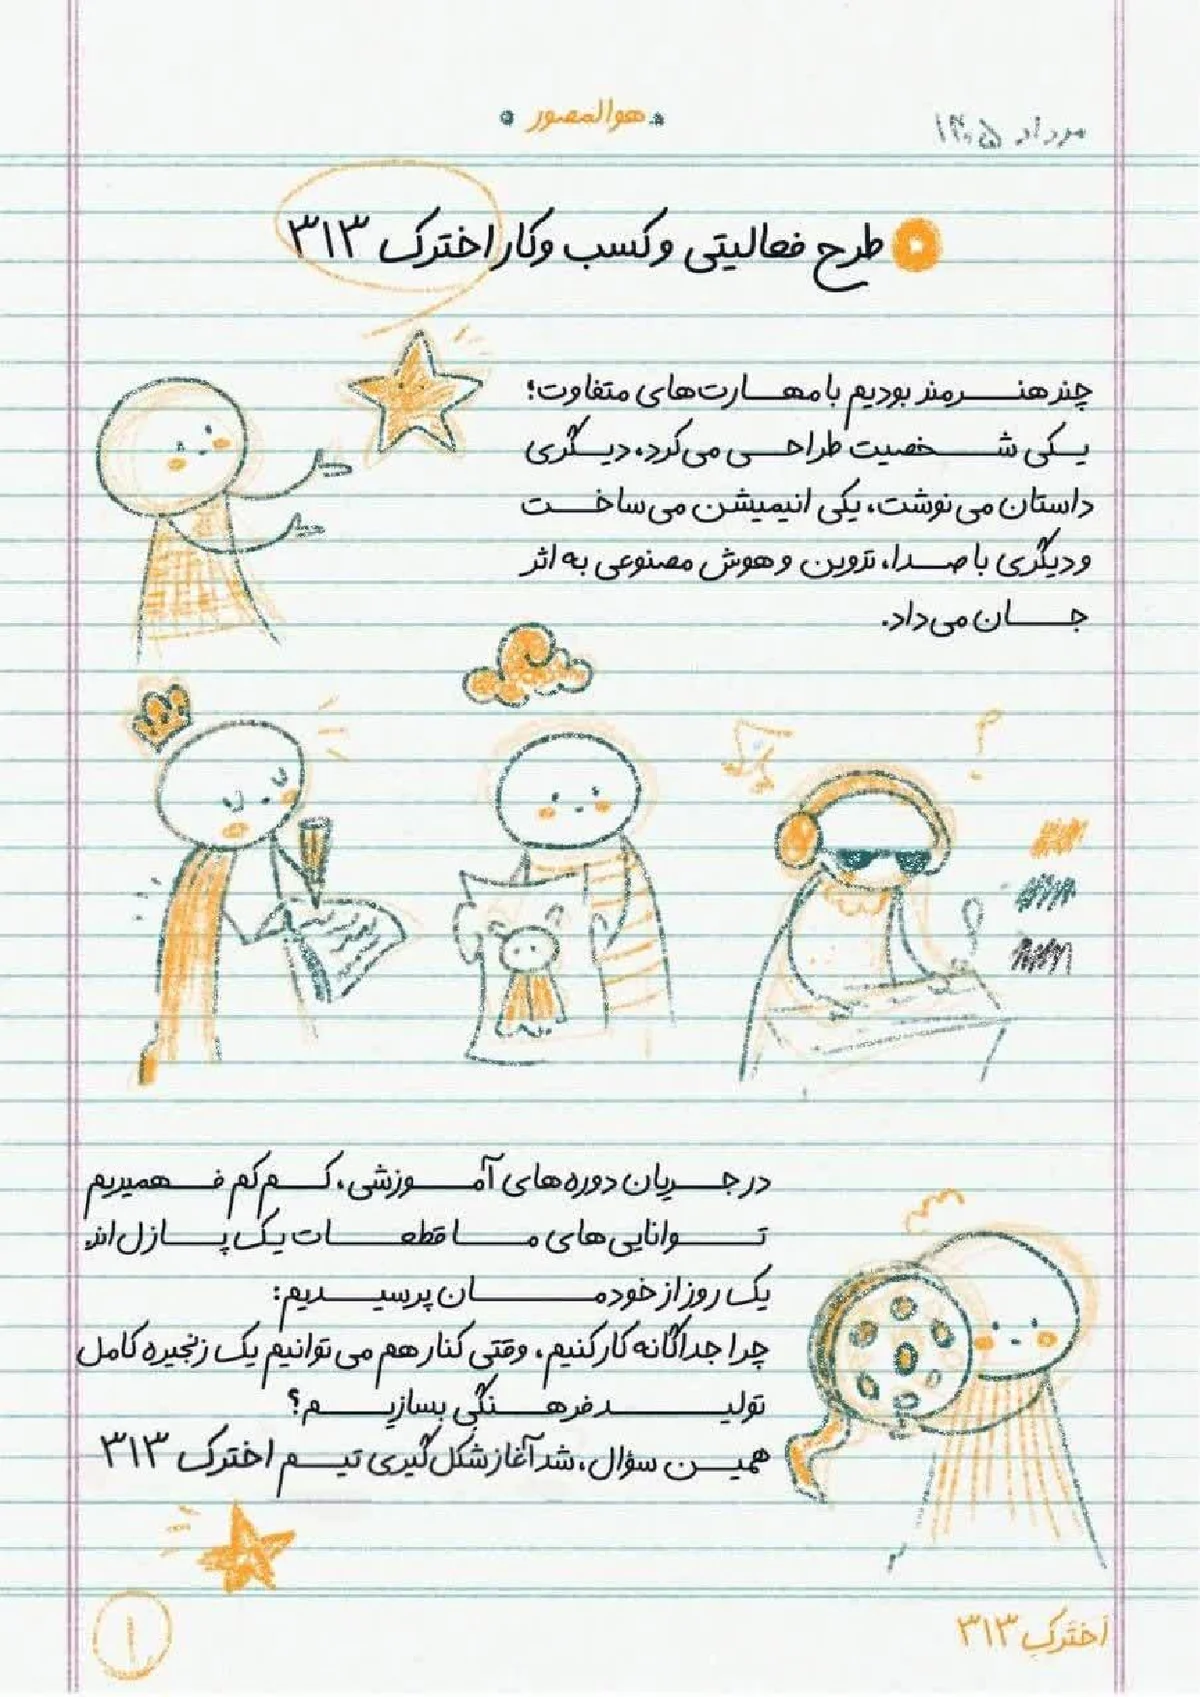 هوالمصور
مرداد ۱۴۰۵
طرح فعالیتی و کسب و کار اخترک ۳۱۳
چند هنرمند بودیم با مهارت‌های متفاوت؛
یکی شخصیت طراحی می‌کرد، دیگری
داستان می‌نوشت، یکی انیمیشن می‌ساخت
و دیگری با صدا، تدوین و هوش مصنوعی به اثر
جان می‌داد.
در جریان دوره‌های آموزشی، کم‌کم فهمیدیم
توانایی‌های ما قطعات یک پازل‌اند.
یک روز از خودمان پرسیدیم:
چرا جداگانه کار کنیم، وقتی کنار هم می‌توانیم یک زنجیره کامل
تولید فرهنگی بسازیم؟
همین سؤال، شد آغاز شکل‌گیری تیم اخترک ۳۱۳
اخترک ۳۱۳
۱